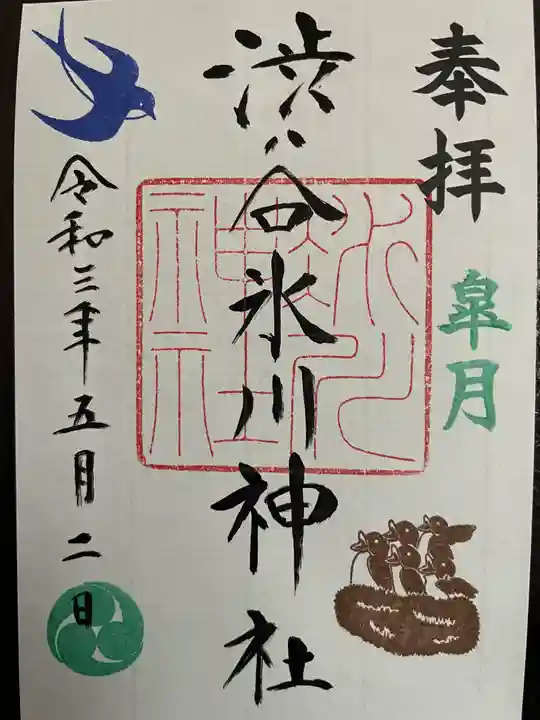 奉拝
皐月
渋谷氷川神社
氷川神社
令和三年五月二日